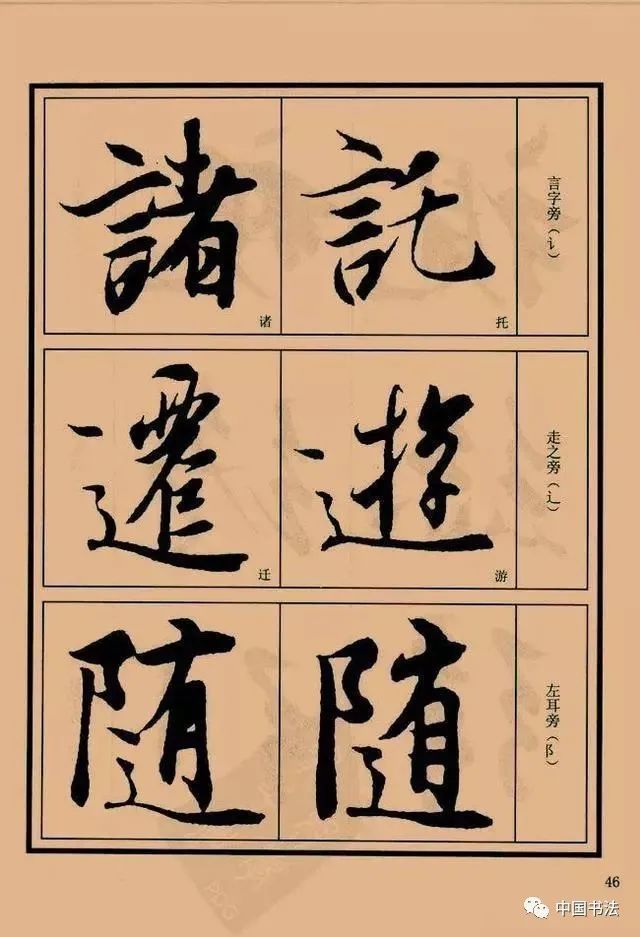 言字旁（讠）
託
托
諸
诸
走之旁（辶）
遊
游
遷
迁
左耳旁（阝）
随
随
46
中国书法